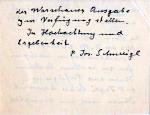 der Warschauer Ausgabe
zur Verfügung stellen.
In Hochachtung und
Ergebenheit
P. Jos. Schmeigl